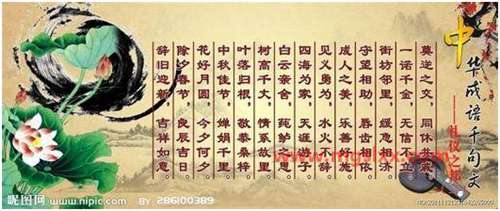 中华成语千句文
——礼仪之邦
莫逆之交，同休共戚。
一诺千金，无信不立。
街坊邻里，缓急相济。
守望相助，唇齿相依。
成人之美，乐善好施。
见义勇为，水火不辞。
四海为家，天涯游子。
白云亲舍，莼鲈之思。
树高千丈，情系故里。
叶落归根，敬恭桑梓。
中秋佳节，婵娟千里。
花好月圆，今夕何夕。
除夕春节，良辰吉日。
辞旧迎新，吉祥如意。
昵图网
www.nipic.com BY: 286100389